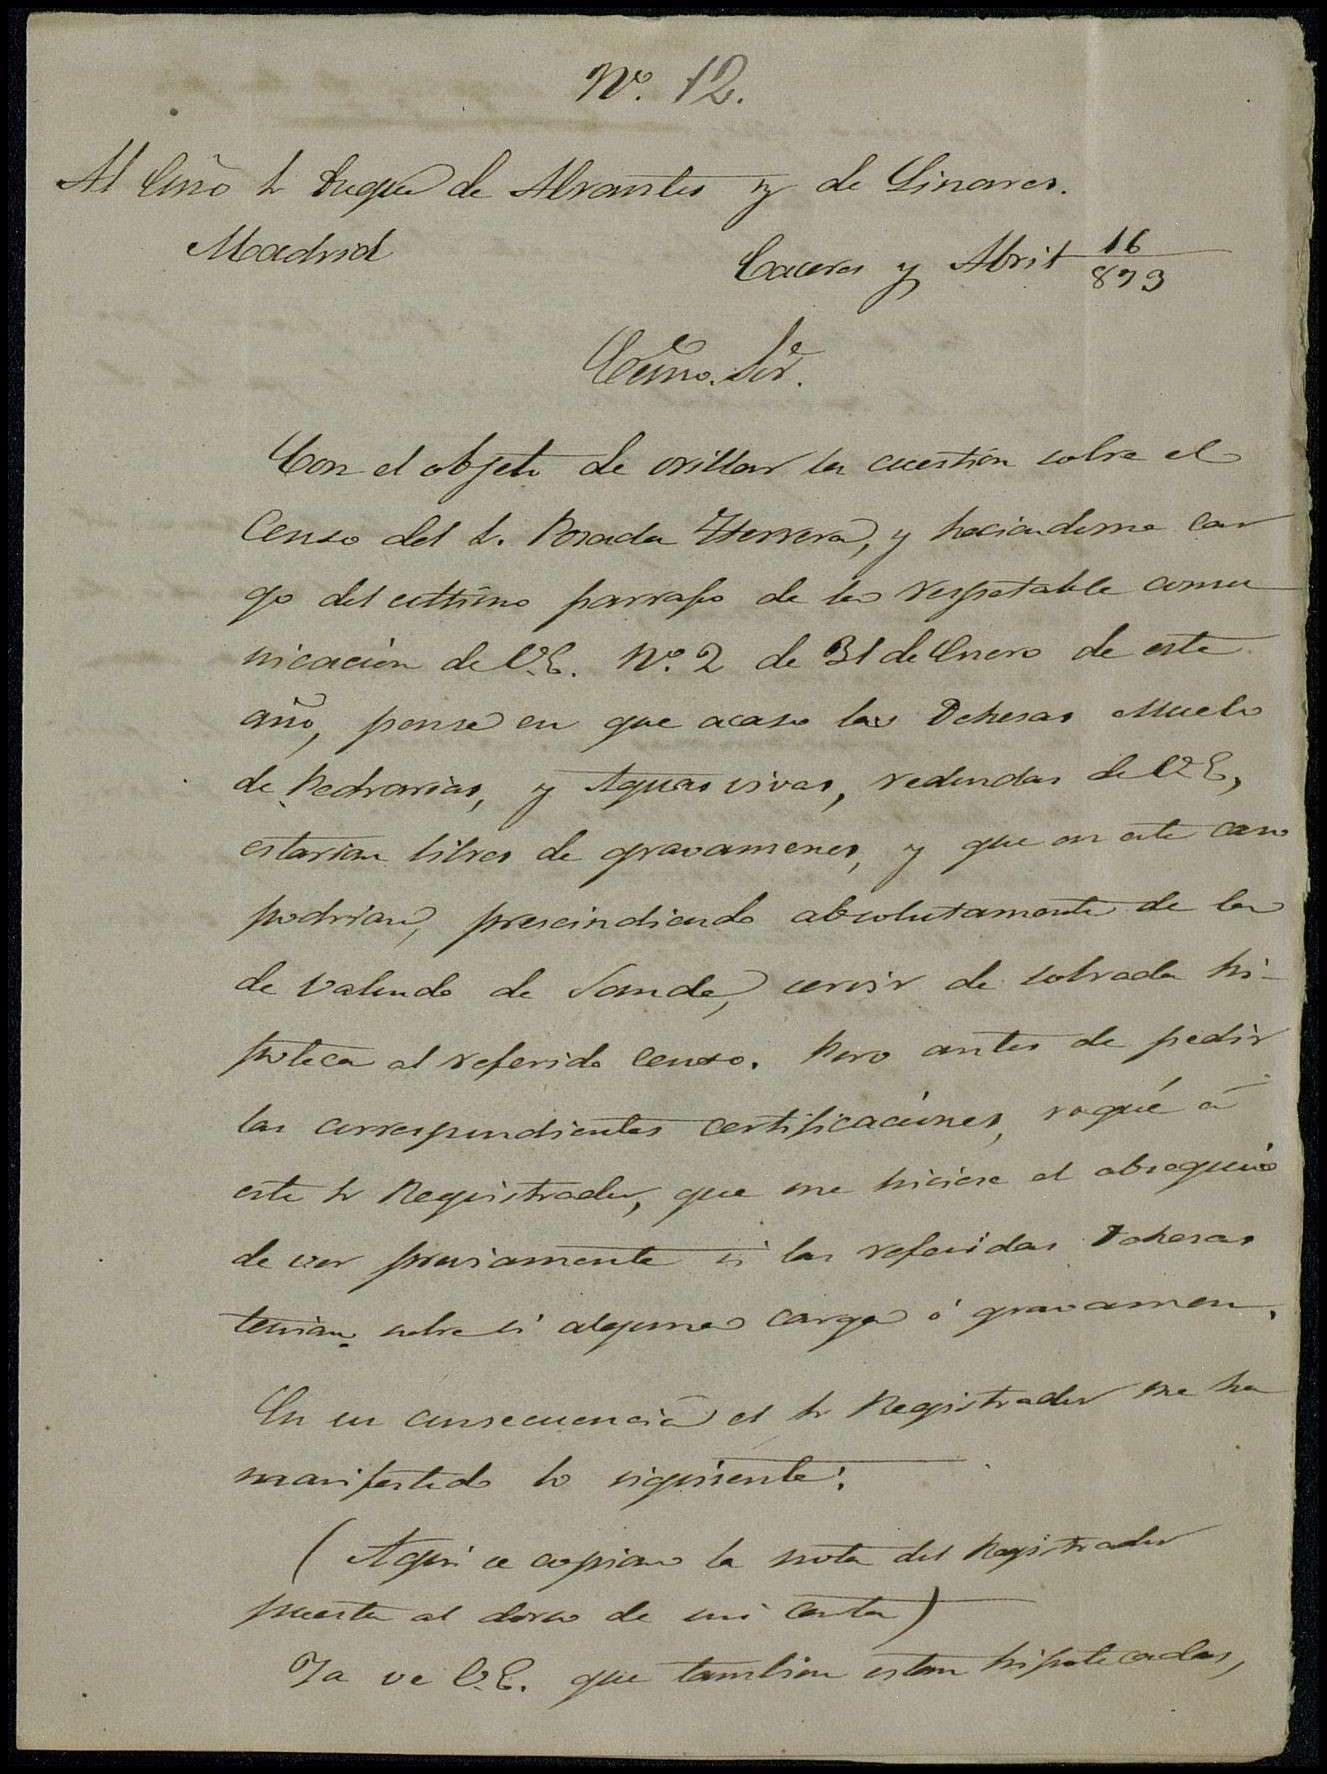 Nº. 12.
Al Exmo Sr Duque de Abrantes y de Linares.
Madrid
Caceres y Abril 16
873
Exmo. Sor.
Con el objeto de orillar la cuestion sobre el
Censo del Sr. Posada Herrera, y haciendome car
go del ultimo parrafo de la respetable comu
nicacion de V.E. Nº. 2 de 31 de Enero de este
año, pensé en que acaso las Dehesas Suelo
de Pedrarias, y Aguas vivas, redondas de V.E,
estarian libres de gravamenes, y que en este caso
podrian, prescindiendo absolutamente de la
de Valondo de Sande, servir de sobrada hi-
poteca al referido Censo. Pero antes de pedir
las correspondientes certificaciones, rogué á
este Sr Registrador, que me hiciese el obsequio
de ver previamente si las referidas Dehesas
tenian sobre si alguna carga ó gravamen.
En su consecuencia el Sr Registrador me ha
manifestado lo siguiente:
(Aqui se copian la nota del Registrador
puesta al dorso de mi carta)
Ya ve V.E. que tambien estan hipotecadas,